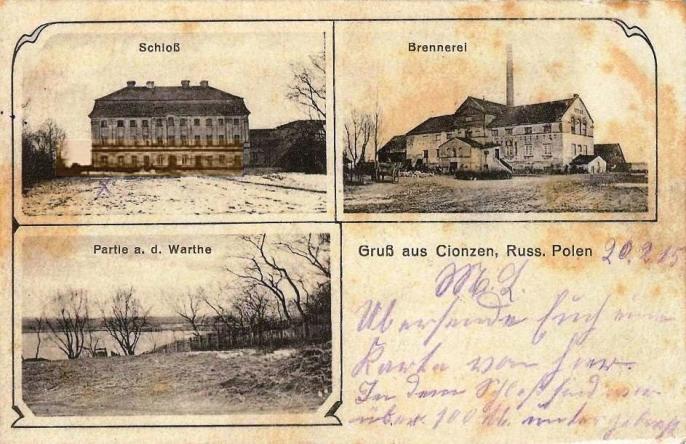 Schloß
Brennerei
Partie a. d. Warthe
Gruß aus Cionzen, Russ. Polen 20.2.15
M. L.
Übersende Euch eine
Karte von hier.
In dem Schloß sind wir
über 100 M. untergebracht